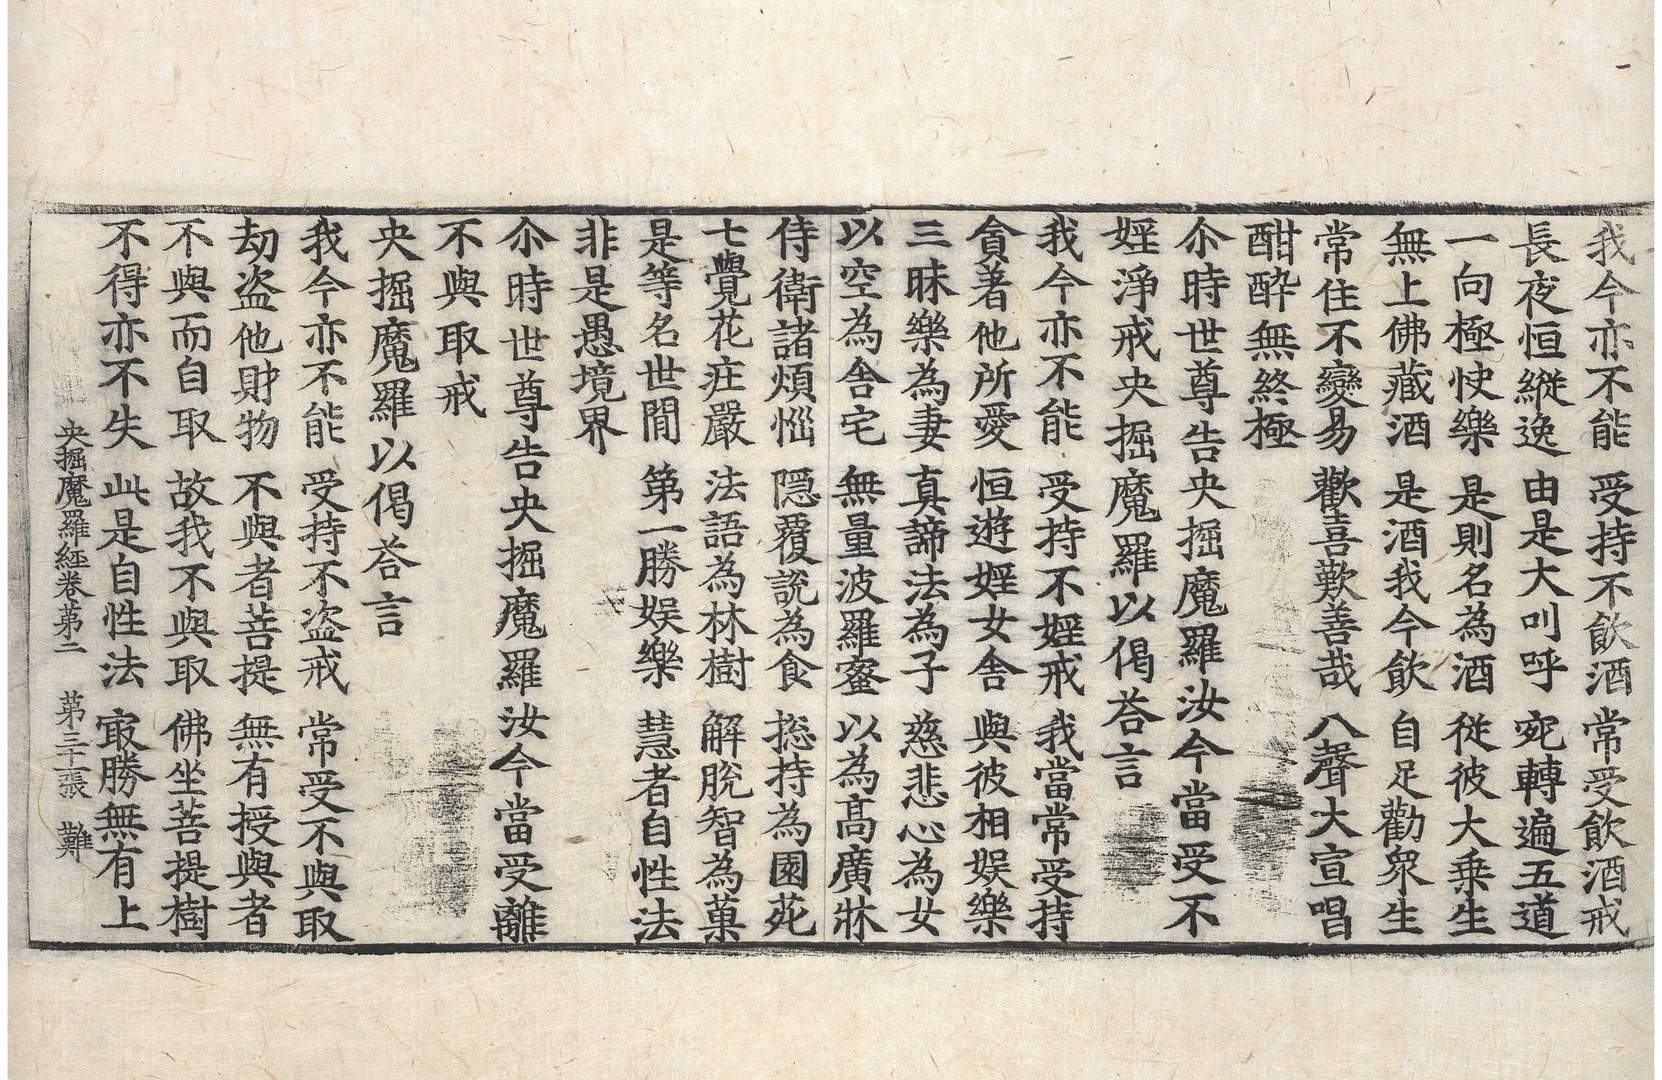 我今亦不能 受持不飲酒 常受飲酒戒
長夜恒縱逸 由是大叫呼 宛轉遍五道
一向極快樂 是則名為酒 從彼大乗生
無上佛藏酒 是酒我今飲 自足勸衆生
常住不變易 歡喜歎善哉 八聲大宣唱
酣醉無終極
尒時世尊告央掘魔羅汝今當受不
婬淨戒央掘魔羅以偈荅言
我今亦不能 受持不婬戒 我當常受持
貪著他所愛 恒遊婬女舎 與彼相娯樂
三昧樂為妻 真諦法為子 慈悲心為女
以空為舎宅 無量波羅蜜 以為髙廣牀
侍衛諸煩惱 隠覆說為食 揔持為園苑
七覺花莊嚴 法語為林樹 解脫智為菓
是等名世間 第一勝娯樂 慧者自性法
非是愚境界
尒時世尊告央掘魔羅汝今當受離
不與取戒
央掘魔羅以偈荅言
我今亦不能 受持不盗戒 常受不與取
劫盗他財物 不與者菩提 無有授與者
不與而自取 故我不與取 佛坐菩提樹
不得亦不失 此是自性法 冣勝無有上
央掘魔羅經卷第二 第三十一張 難